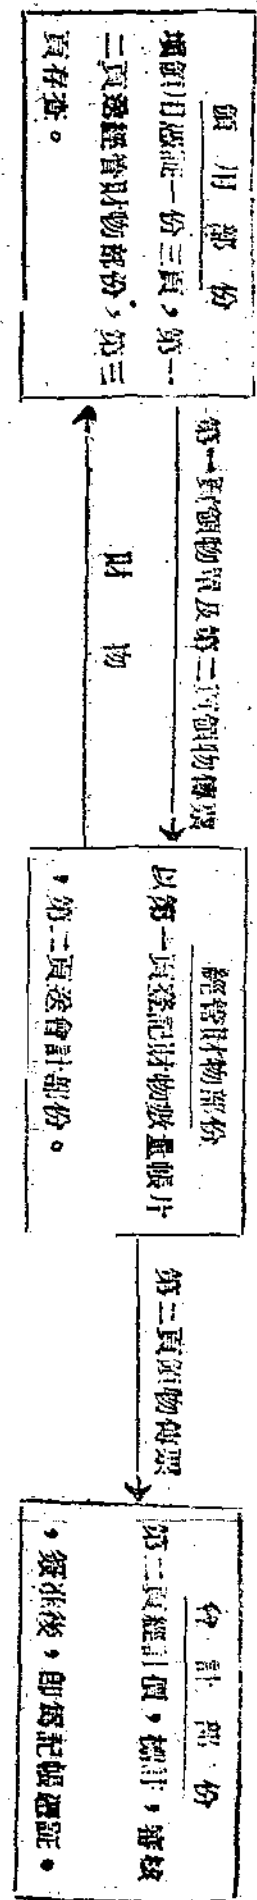 領用部份
填領用憑証一份三頁，第一
二頁送經管財物部份，第三
頁存查。
第一頁領物單及第二頁領物傳票
財物
經管財物部份
以第一頁登記財物數量帳片
，第二頁送會計部份。
第二頁領物傳票
會計部份
第二頁經計價，標計，審核
，核准後，即為記帳憑証。